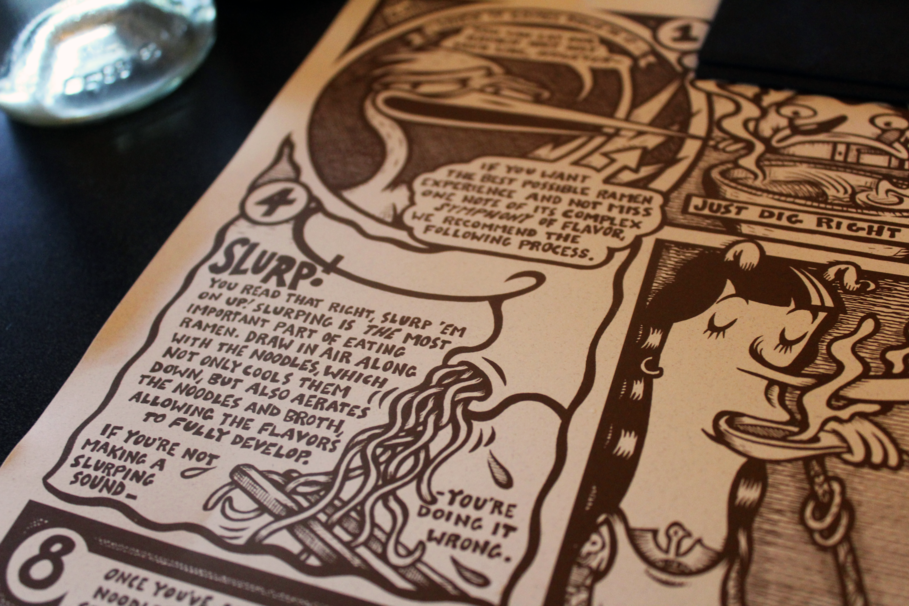 1
IF YOU WANT
THE BEST POSSIBLE RAMEN
EXPERIENCE AND NOT MISS
ONE NOTE OF ITS COMPLEX
SYMPHONY OF FLAVOR,
WE RECOMMEND THE
FOLLOWING PROCESS.
JUST DIG RIGHT
4
SLURP!
YOU READ THAT RIGHT, SLURP 'EM
ON UP! SLURPING IS THE MOST
IMPORTANT PART OF EATING
RAMEN. DRAW IN AIR ALONG
WITH THE NOODLES, WHICH
NOT ONLY COOLS THEM
DOWN, BUT ALSO AERATES
THE NOODLES AND BROTH,
ALLOWING THE FLAVORS
TO FULLY DEVELOP.
IF YOU'RE NOT
MAKING A
SLURPING
SOUND—
-YOU'RE
DOING IT
WRONG.
8
ONCE YOU'VE